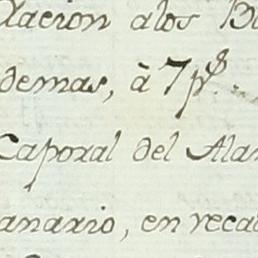 dacion alos B
demas, à 7 p.s
Caporal del Ala
anario, en reca